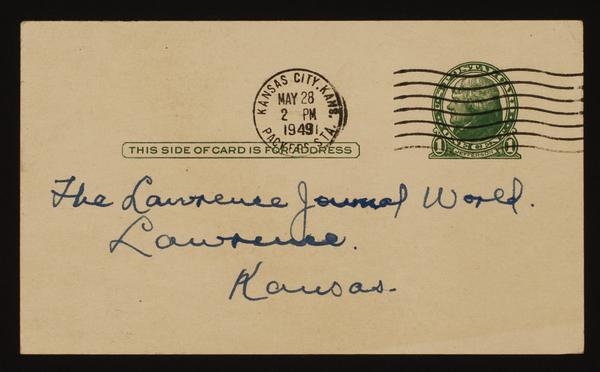 KANSAS CITY, KANS.
MAY 28
2 PM
1949
PACKERS STA.
1 1
THIS SIDE OF CARD IS FOR ADDRESS
The Lawrence Journal World.
Lawrence.
Kansas.